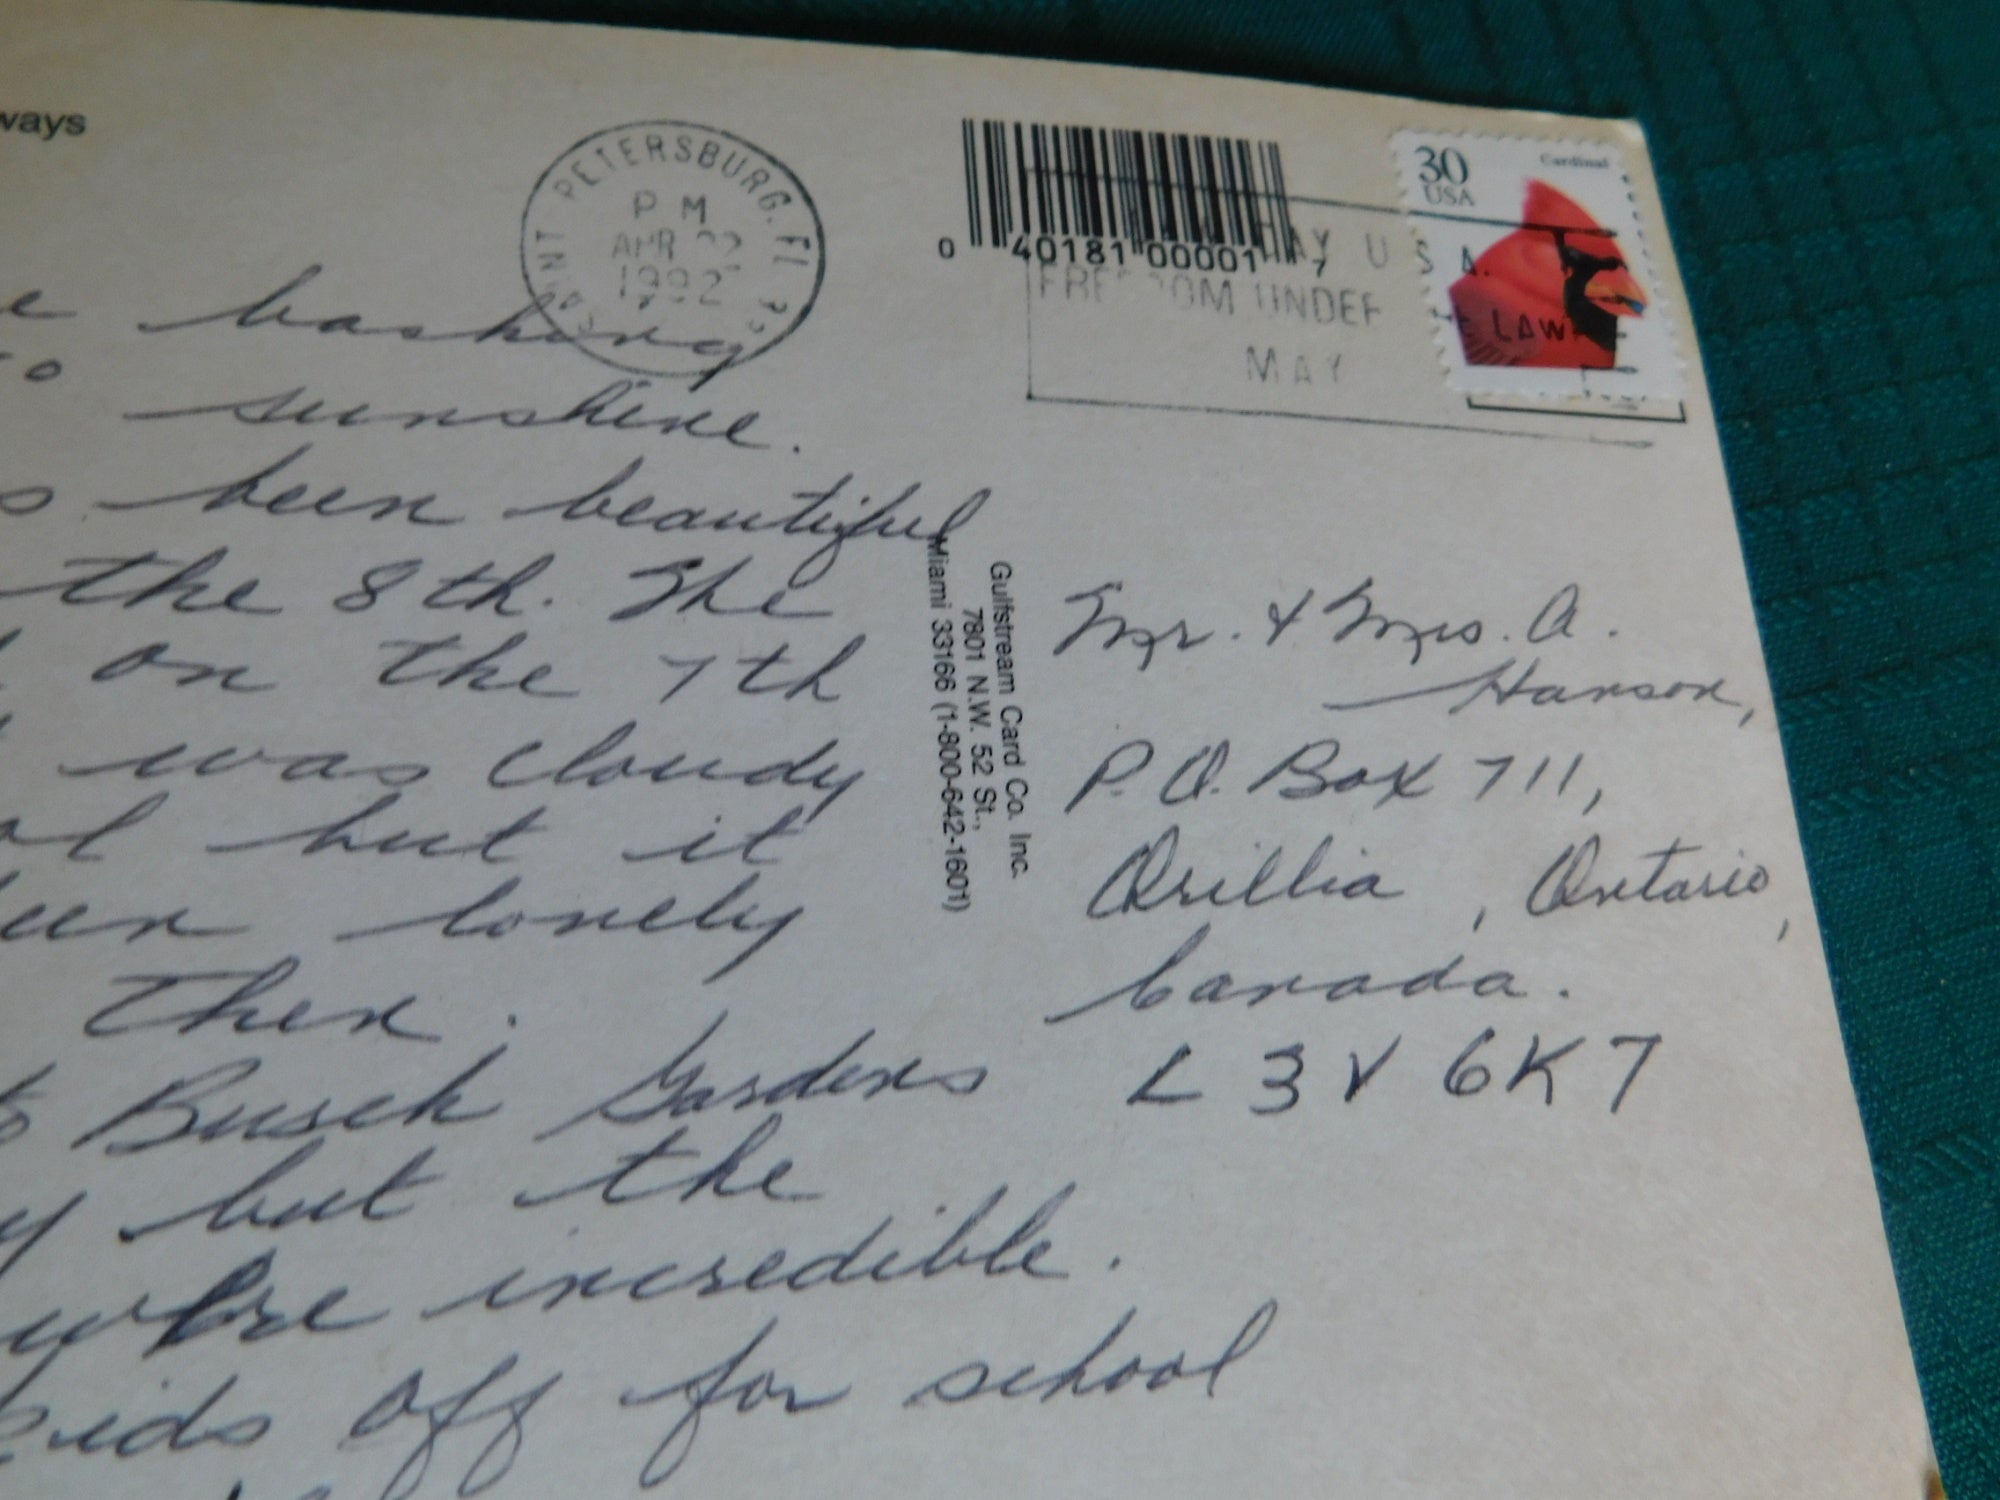 ways
SAINT PETERSBURG, FL
P M
APR
1992
0 40181 00001 7
DAY U S A.
FREEDOM UNDER
LAW
MAY
30
USA
Cardinal
basking
sunshine.
been beautiful
the 8th. The
on the 7th
was cloudy
but it
lonely
then.
Busch Gardens
but the
were incredible.
kids off for school
Gulfstream Card Co. Inc.
7801 N.W. 52 St.,
Miami 33166 (1-800-642-1601)
Mr. & Mrs. A.
Hanson,
P.O. Box 711,
Orillia, Ontario,
Canada.
L3V 6K7